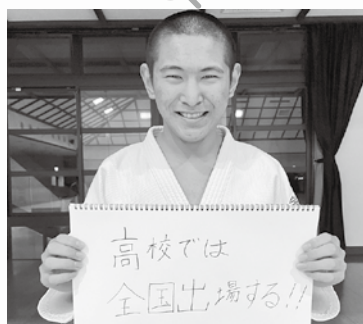 高校では
全国出場する!!